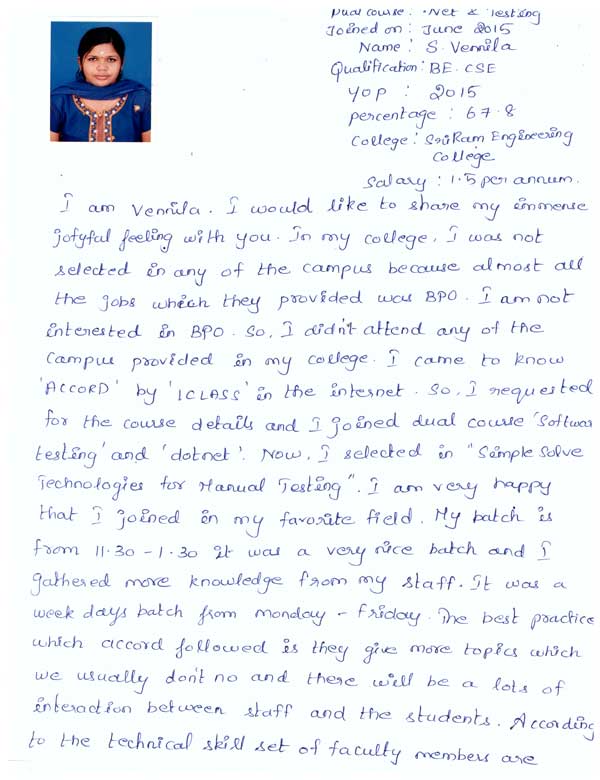 Dual Course : .Net & Testing
Joined on : June 2015
Name : S. Vennila
Qualification : BE. CSE
YOP : 2015
percentage : 67.8
College : SriRam Engineering
College
Salary : 1.5 per annum.
I am Vennila. I would like to share my immense
jofyful feeling with you. In my college, I was not
selected in any of the campus because almost all
the jobs which they provided was BPO. I am not
interested in BPO. So, I didn't attend any of the
Campus provided in my college. I came to know
'ACCORD' by 'ICLASS' in the internet. So, I requested
for the course details and I joined dual course 'Softwar
testing' and 'dotnet'. Now, I selected in "Simple Solve
Technologies for Manual Testing". I am very happy
that I joined in my favorite field. My batch is
from 11.30 - 1.30 it was a very nice batch and I
gathered more knowledge from my staff. It was a
week days batch from monday - Friday. The best practice
which accord followed is they give more topics which
we usually don't no and there will be a lots of
interaction between staff and the students. According
to the technical skill set of faculty members are